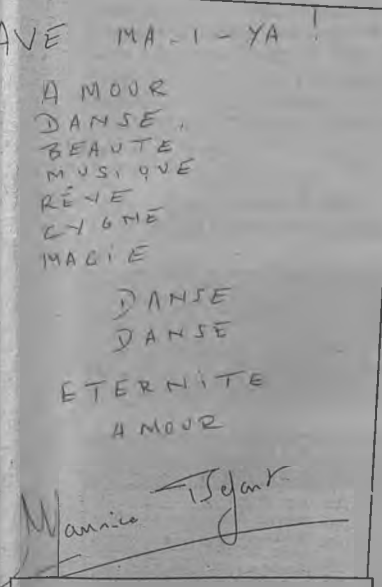 AVE MA-I-YA !
AMOUR
DANSE.
BEAUTE
MUSIQUE
RÊVE
CYGNE
MAGIE
DANSE
DANSE
ETERNITE
AMOUR
Maurice Béjart